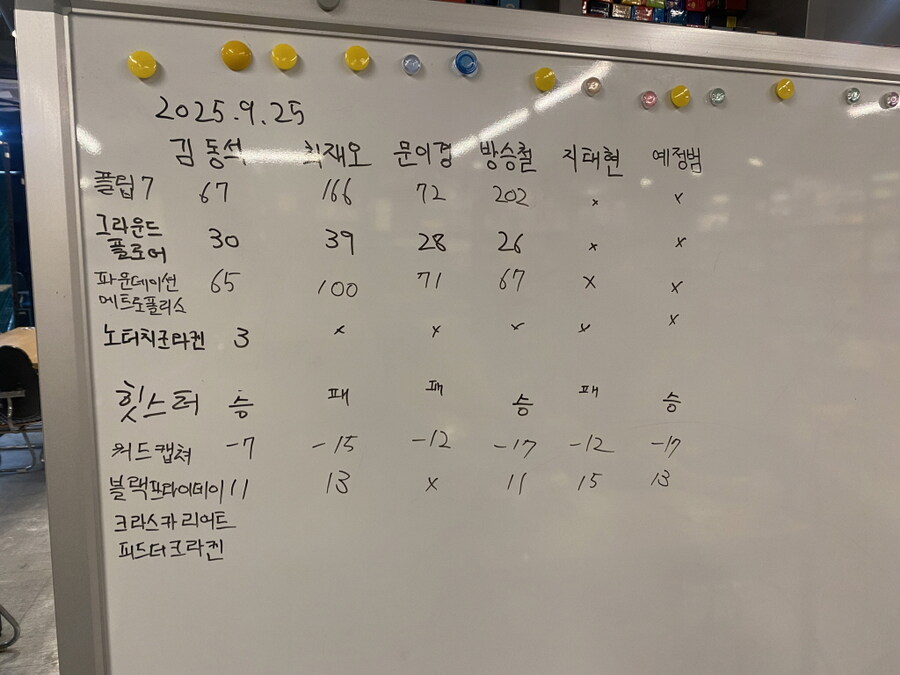 2025.9.25
김동석 최재오 문이경 방승철 지태현 예정범
플립7 67 166 72 202 x x
그라운드
플로어 30 39 28 26 x x
파운데이션
메트로폴리스 65 100 71 67 x x
노터치크라켄 3 x x x x x
힛스터 승 패 패 승 패 승
워드캡쳐 -7 -15 -12 -17 -12 -17
블랙프라이데이 11 13 x 11 15 13
크라스카리어트
피드더크라켄